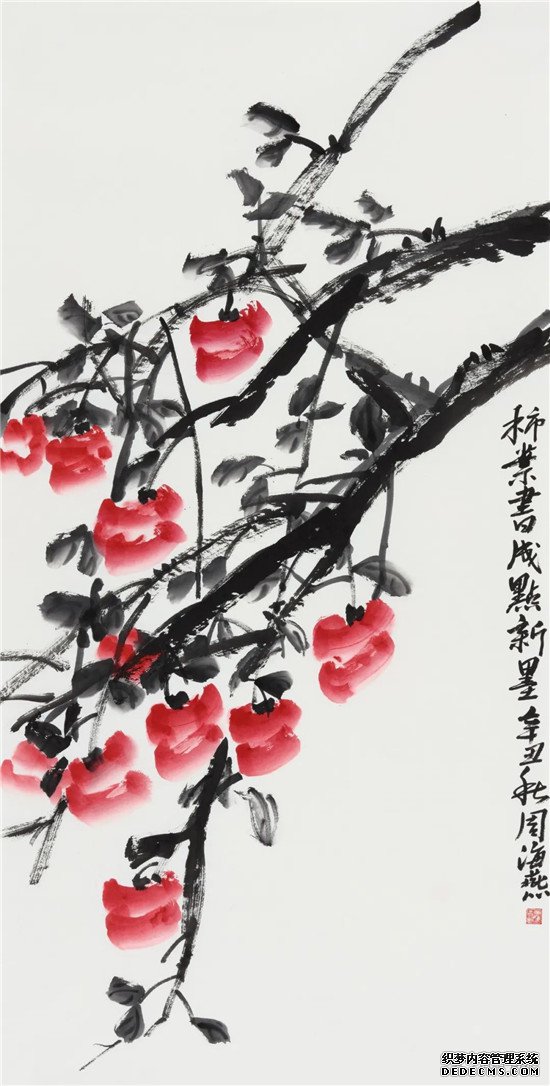 柿葉書成點新墨辛丑秋周海燕
织梦内容管理系统
DEDECMS.COM